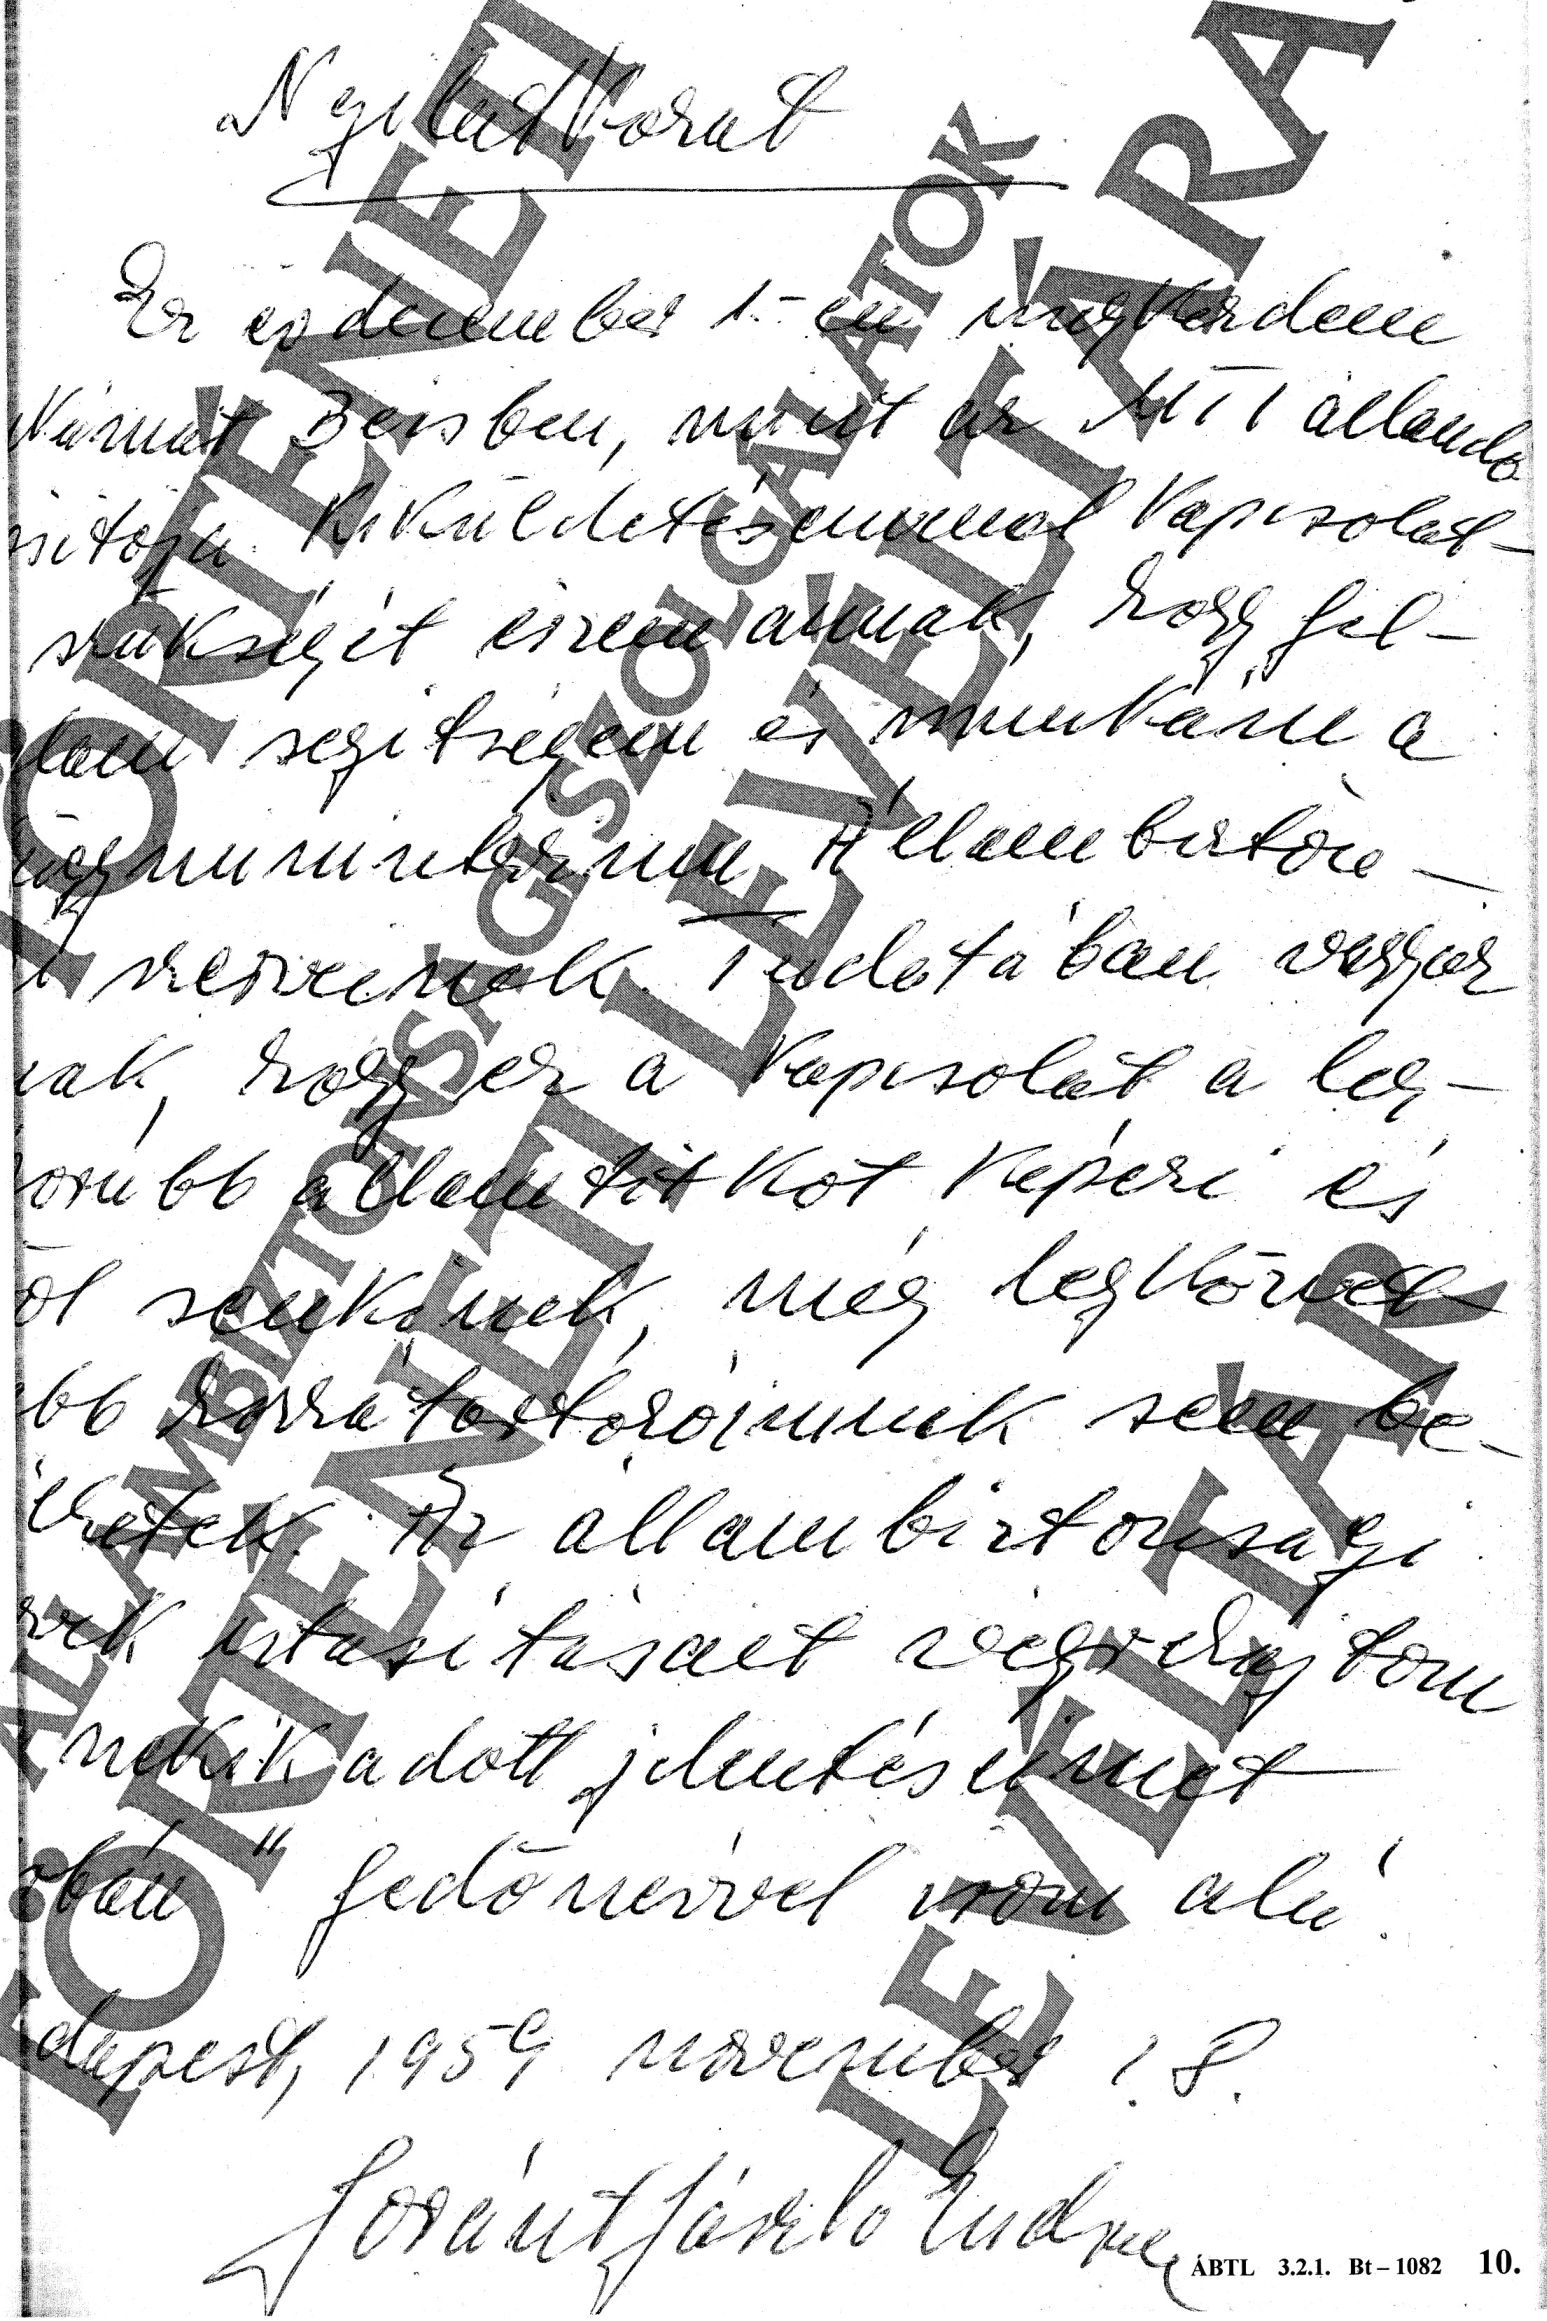 Nyilatkozat
Ez év december 1.-én megkezdem
Bécsben, mint az MTI állandó
sítója. Kiküldetésemmel kapcsolat-
szükségét érzem annak, hogy fel-
segítségem és munkám a
ügyminisztérium Állambizton-
i szerveinek. Tudatában vagyok
nak, hogy ez a kapcsolat a leg-
orúbb államtitkot képezi és
ől senkinek, még legközvet-
bb hozzátartozóimnak sem be-
élhetek. Az állambiztonsági
rvek utasításait végrehajtom
nekik adott jelentéseimet
bán" fedőnévvel írom alá.
dapest, 1959 november 18.
Lóránt László Endre
ÁBTL 3.2.1. Bt-1082 10.
ÁLLAMBIZTONSÁGI SZOLGÁLATOK
TÖRTÉNETI LEVÉLTÁRA